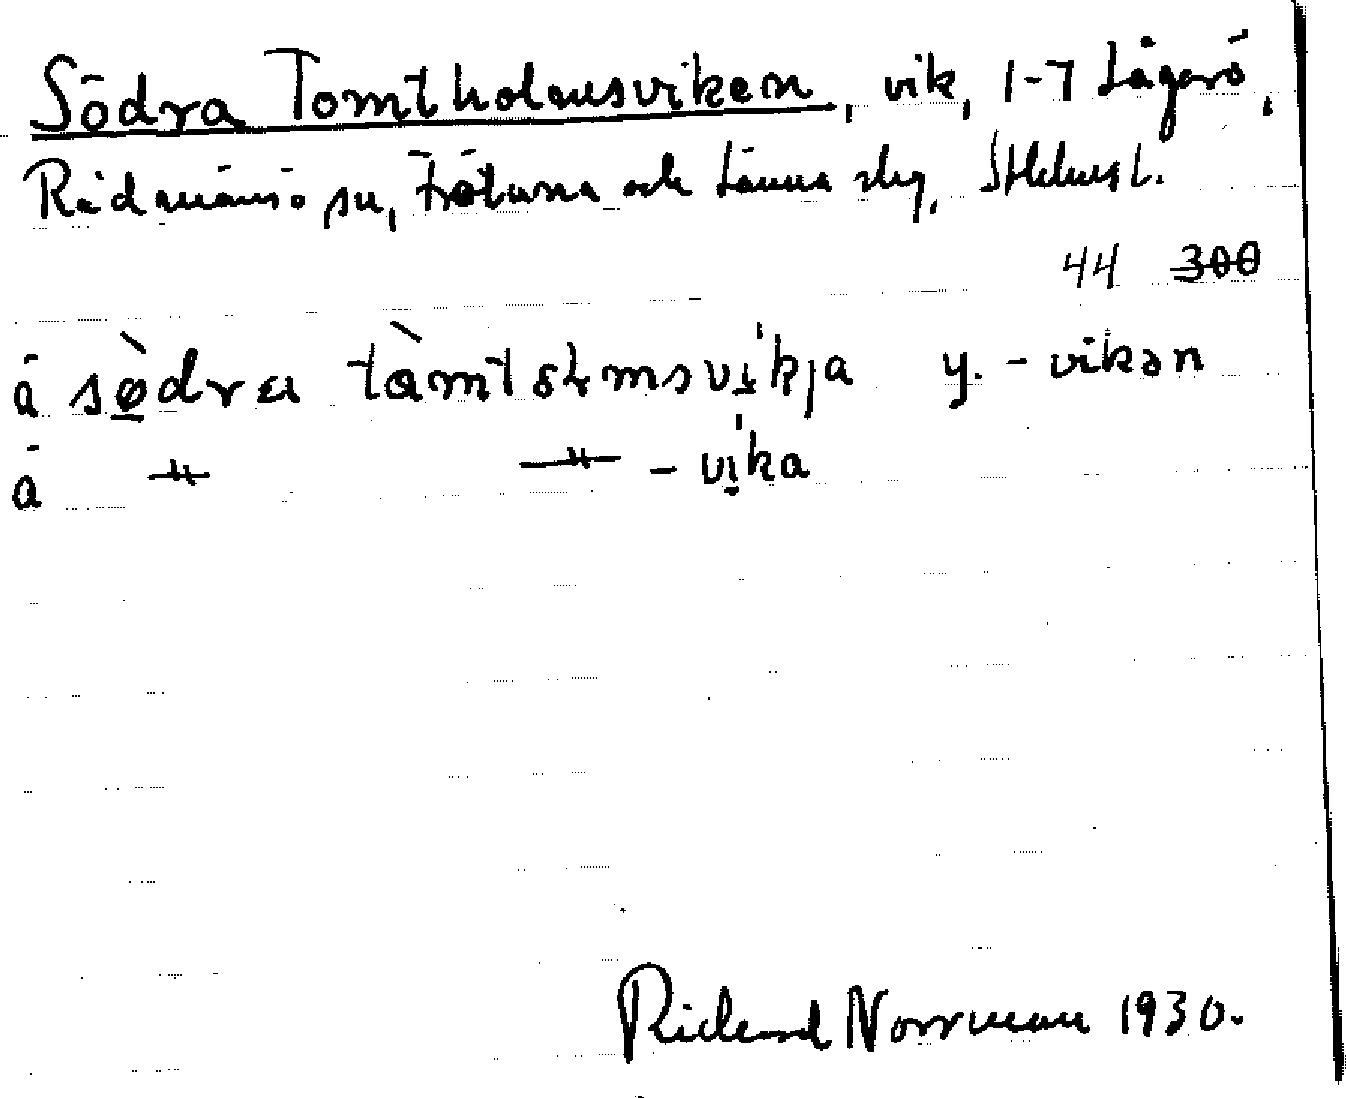 Södra Tomtholmsviken, vik, 1-7 Lågarö,
Rådmansö sn, Frötuna och Länna slg, Sthlms l.
44 300
å sø̀drɛ tàmtɷlmsvikja y. -vikən
å -"- -"- -vika
Richard Norrman 1930.